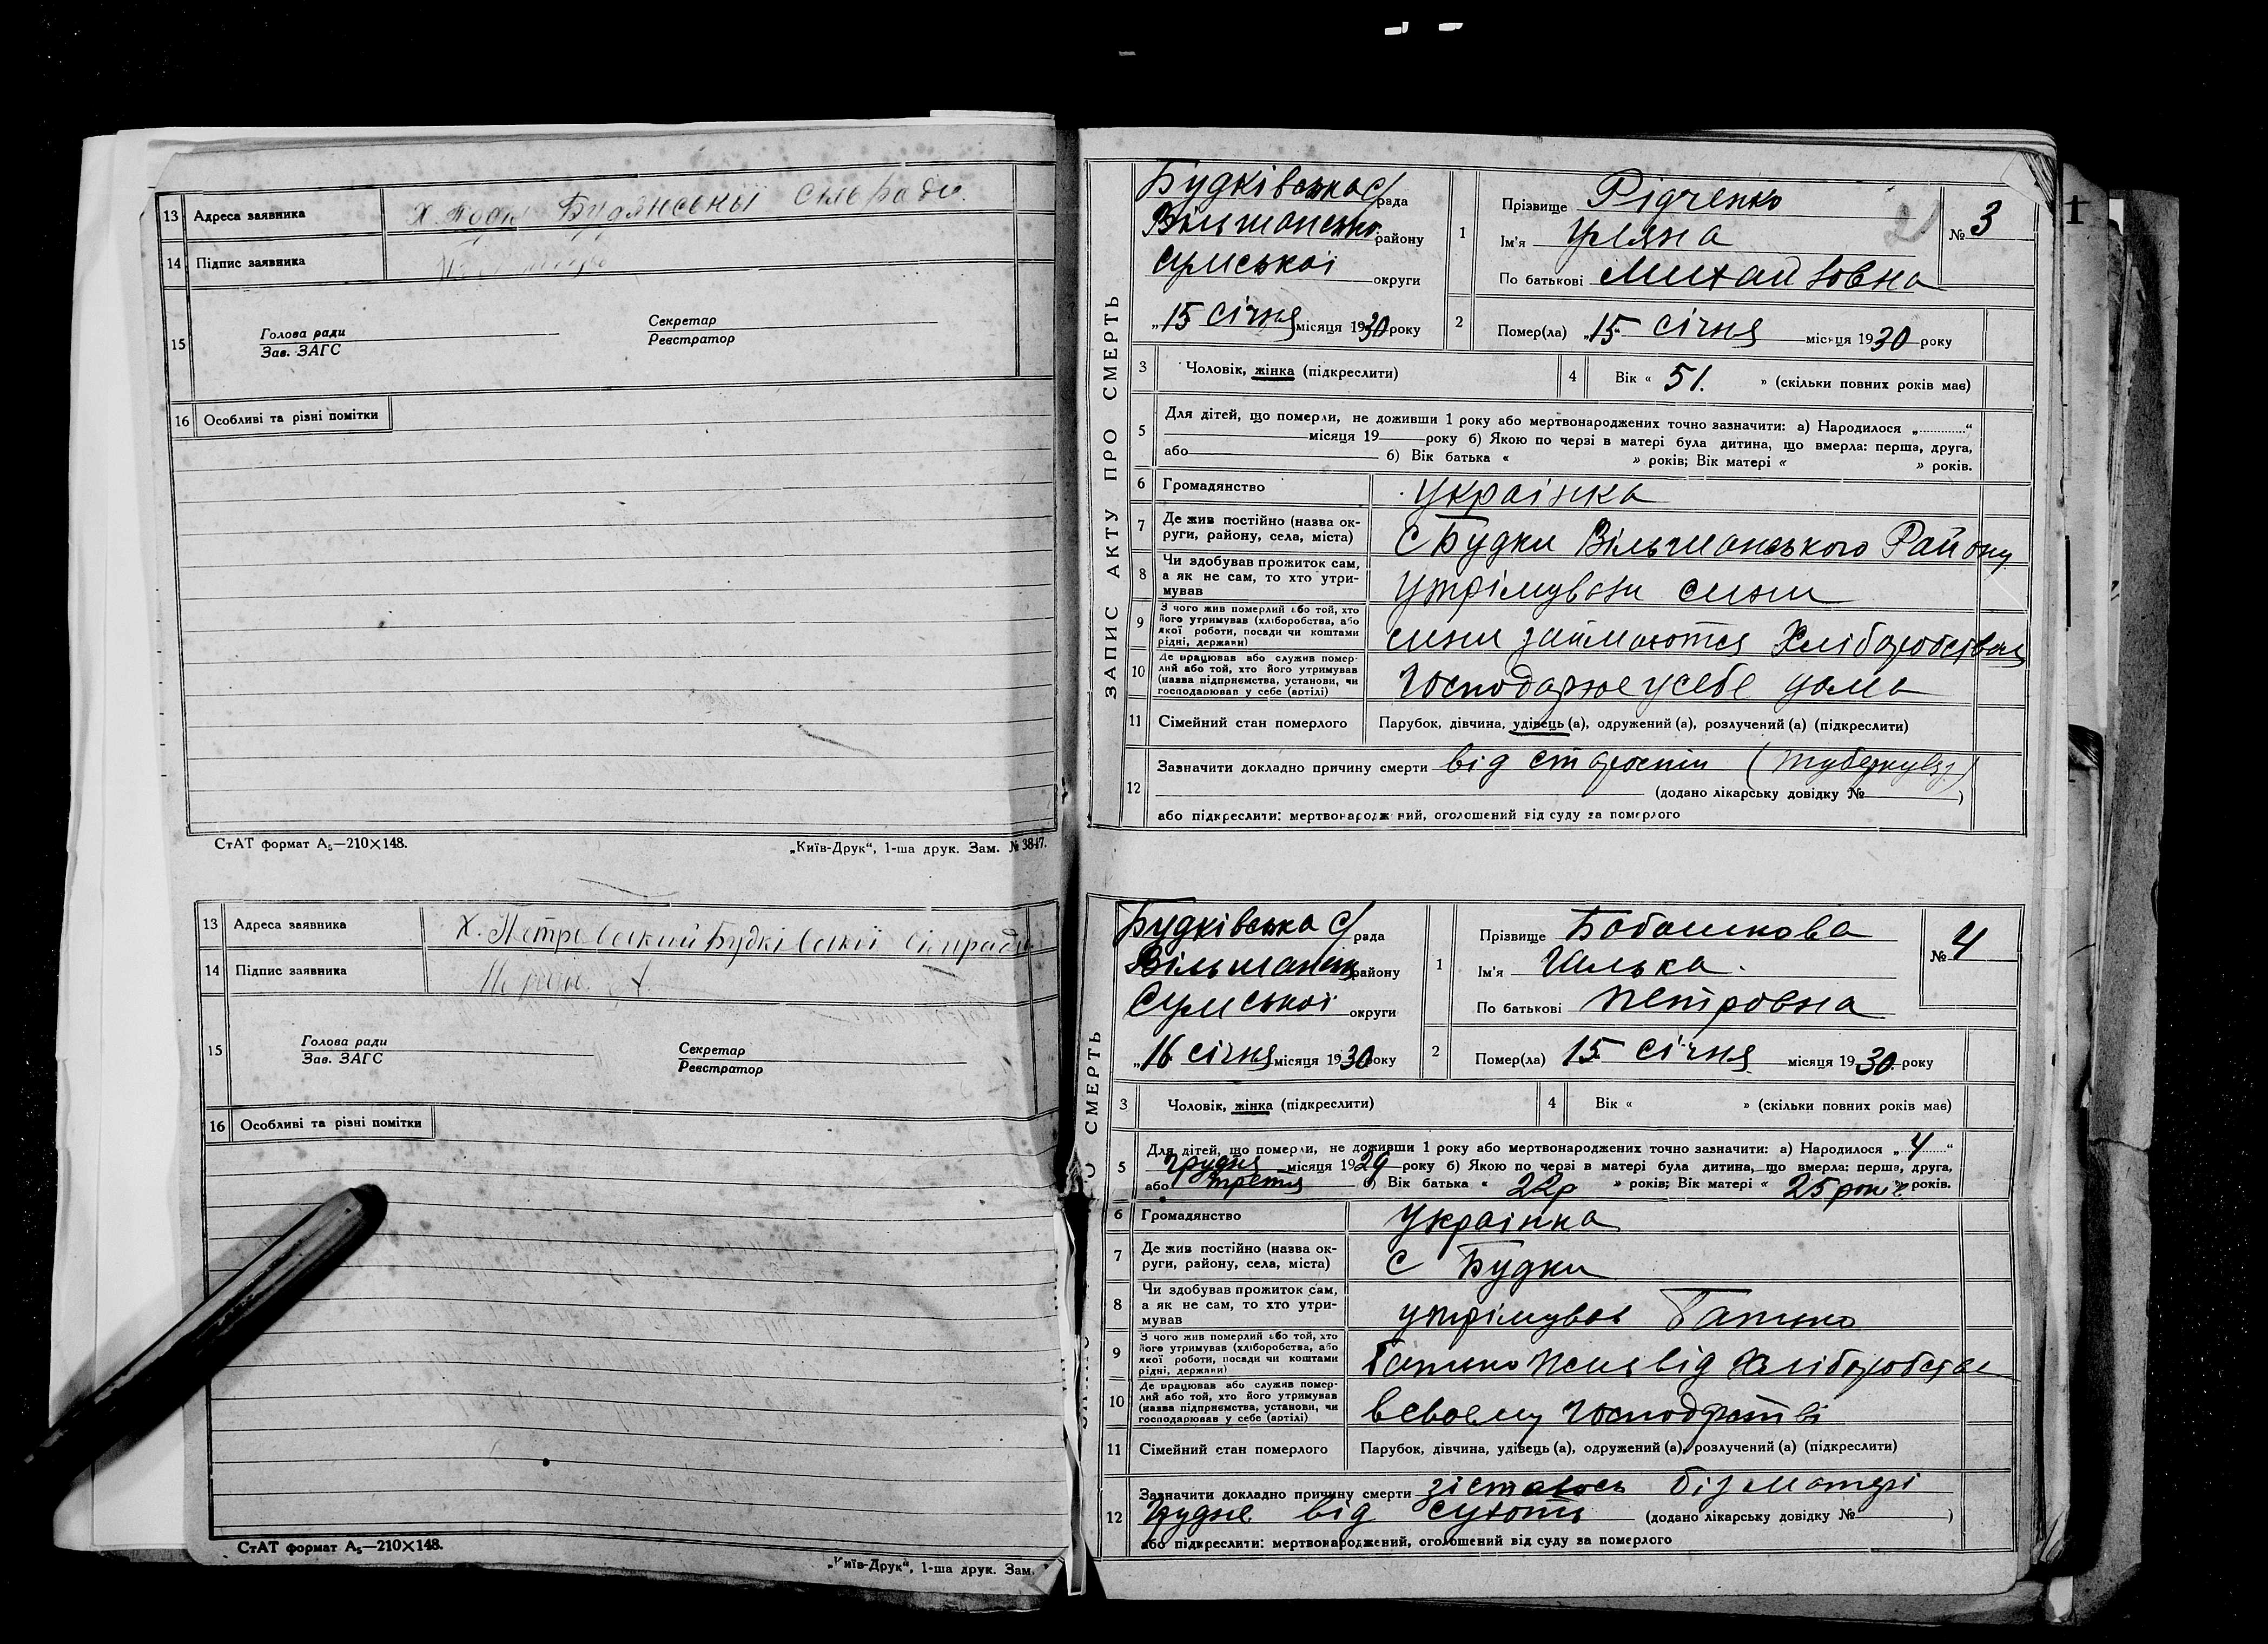 13 Адреса заявника Х. Будянської сільради.
14 Підпис заявника
15 Голова ради Секретар
Зав. ЗАГС Реєстратор
16 Особливі та різні помітки
СтАТ формат А₅—210×148. „Київ-Друк“, 1-ша друк. Зам. № 3847.
13 Адреса заявника Х. Петрівський Будківської сільради
14 Підпис заявника
15 Голова ради Секретар
Зав. ЗАГС Реєстратор
16 Особливі та різні помітки
СтАТ формат А₅—210×148.
„Київ-Друк“, 1-ша друк. Зам.
ЗАПИС АКТУ ПРО СМЕРТЬ
Будківська с/рада
Вільшансько. району
Сумської округи
„15 січня місяця 1930 року
1 Прізвище Рідченко
Ім'я Уляна
По батькові Михайловна
№ 3
2
2 Помер(ла) „15“ січня місяця 1930 року
3 Чоловік, жінка (підкреслити) 4 Вік « 51. » (скільки повних років має)
5 Для дітей, що померли, не доживши 1 року або мертвонароджених точно зазначити: а) Народилося „............“
місяця 19 року б) Якою по черзі в матері була дитина, що вмерла: перша, друга,
або б) Вік батька « » років; Вік матері « » років.
6 Громадянство українка
7 Де жив постійно (назва ок-
руги, району, села, міста) С Будки Вільшанського Району
8 Чи здобував прожиток сам,
а як не сам, то хто утри-
мував утрімували сини
9 З чого жив померлий або той, хто
його утримував (хліборобства, або
якої роботи, посади чи коштами
рідні, держави) сини займаются Хліборобством
10 Де працював або служив помер-
лий або той, хто його утримував
(назва підприємства, установи, чи
господарював у себе (артілі) Господарює у себе дома
11 Сімейний стан померлого Парубок, дівчина, удівець (а), одружений (а), розлучений (а) (підкреслити)
12 Зазначити докладно причину смерти від старости (туберкульз)
(додано лікарську довідку № )
або підкреслити: мертвонароджений, оголошений від суду за померлого
СМЕРТЬ
Будківська с/рада
Вільшансь району
Сумської округи
„16 січня місяця 1930 року
1 Прізвище Бабашкова
Ім'я Гилька.
По батькові Петровна
№ 4
2 Помер(ла) 15 січня місяця 1930 року
3 Чоловік, жінка (підкреслити) 4 Вік « » (скільки повних років має)
5 Для дітей, що померли, не доживши 1 року або мертвонароджених точно зазначити: а) Народилося „ 4 “
грудня місяця 1929 року б) Якою по черзі в матері була дитина, що вмерла: перша, друга,
або третя б) Вік батька « 22р » років; Вік матері « 25 років » років.
6 Громадянство українка
7 Де жив постійно (назва ок-
руги, району, села, міста) С Будки
8 Чи здобував прожиток сам,
а як не сам, то хто утри-
мував утрімував Батько
9 З чого жив померлий або той, хто
його утримував (хліборобства, або
якої роботи, посади чи коштами
рідні, держави) Батько жив від хліборобства
10 Де працював або служив помер-
лий або той, хто його утримував
(назва підприємства, установи, чи
господарював у себе (артілі) в своєму господарстві
11 Сімейний стан померлого Парубок, дівчина, удівець (а), одружений (а), розлучений (а) (підкреслити)
12 Зазначити докладно причину смерти зісталось біз матері
грудне від сухоть (додано лікарську довідку № )
або підкреслити: мертвонароджений, оголошений від суду за померлого